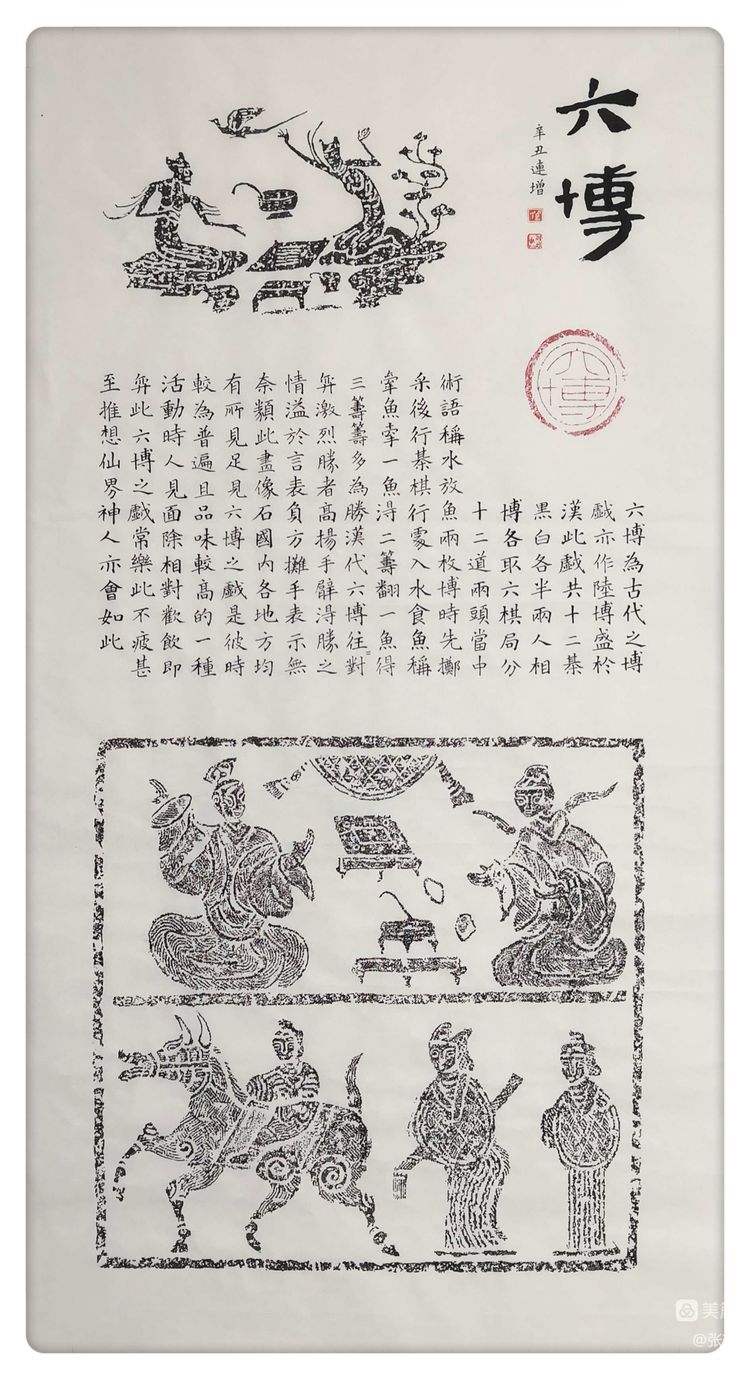 六博
辛丑連增
六博
六博為古代之博
戲亦作陸博盛於
漢此戲共十二棊
黑白各半兩人相
博各取六棋局分
十二道兩頭當中
術語稱水放魚兩枚博時先擲
采後行棊棋行處入水食魚稱
牽魚牽一魚得二籌翻一魚得
三籌籌多為勝漢代六博往對
弈激烈勝者高揚手臂得勝之
情溢於言表負方攤手表示無
奈類此畫像石國内各地方均
有所見足見六博之戲是彼時
較為普遍且品味較高的一種
活動時人見面除相對歡飲即
弈此六博之戲常樂此不疲甚
至推想仙界神人亦會如此
美
@张